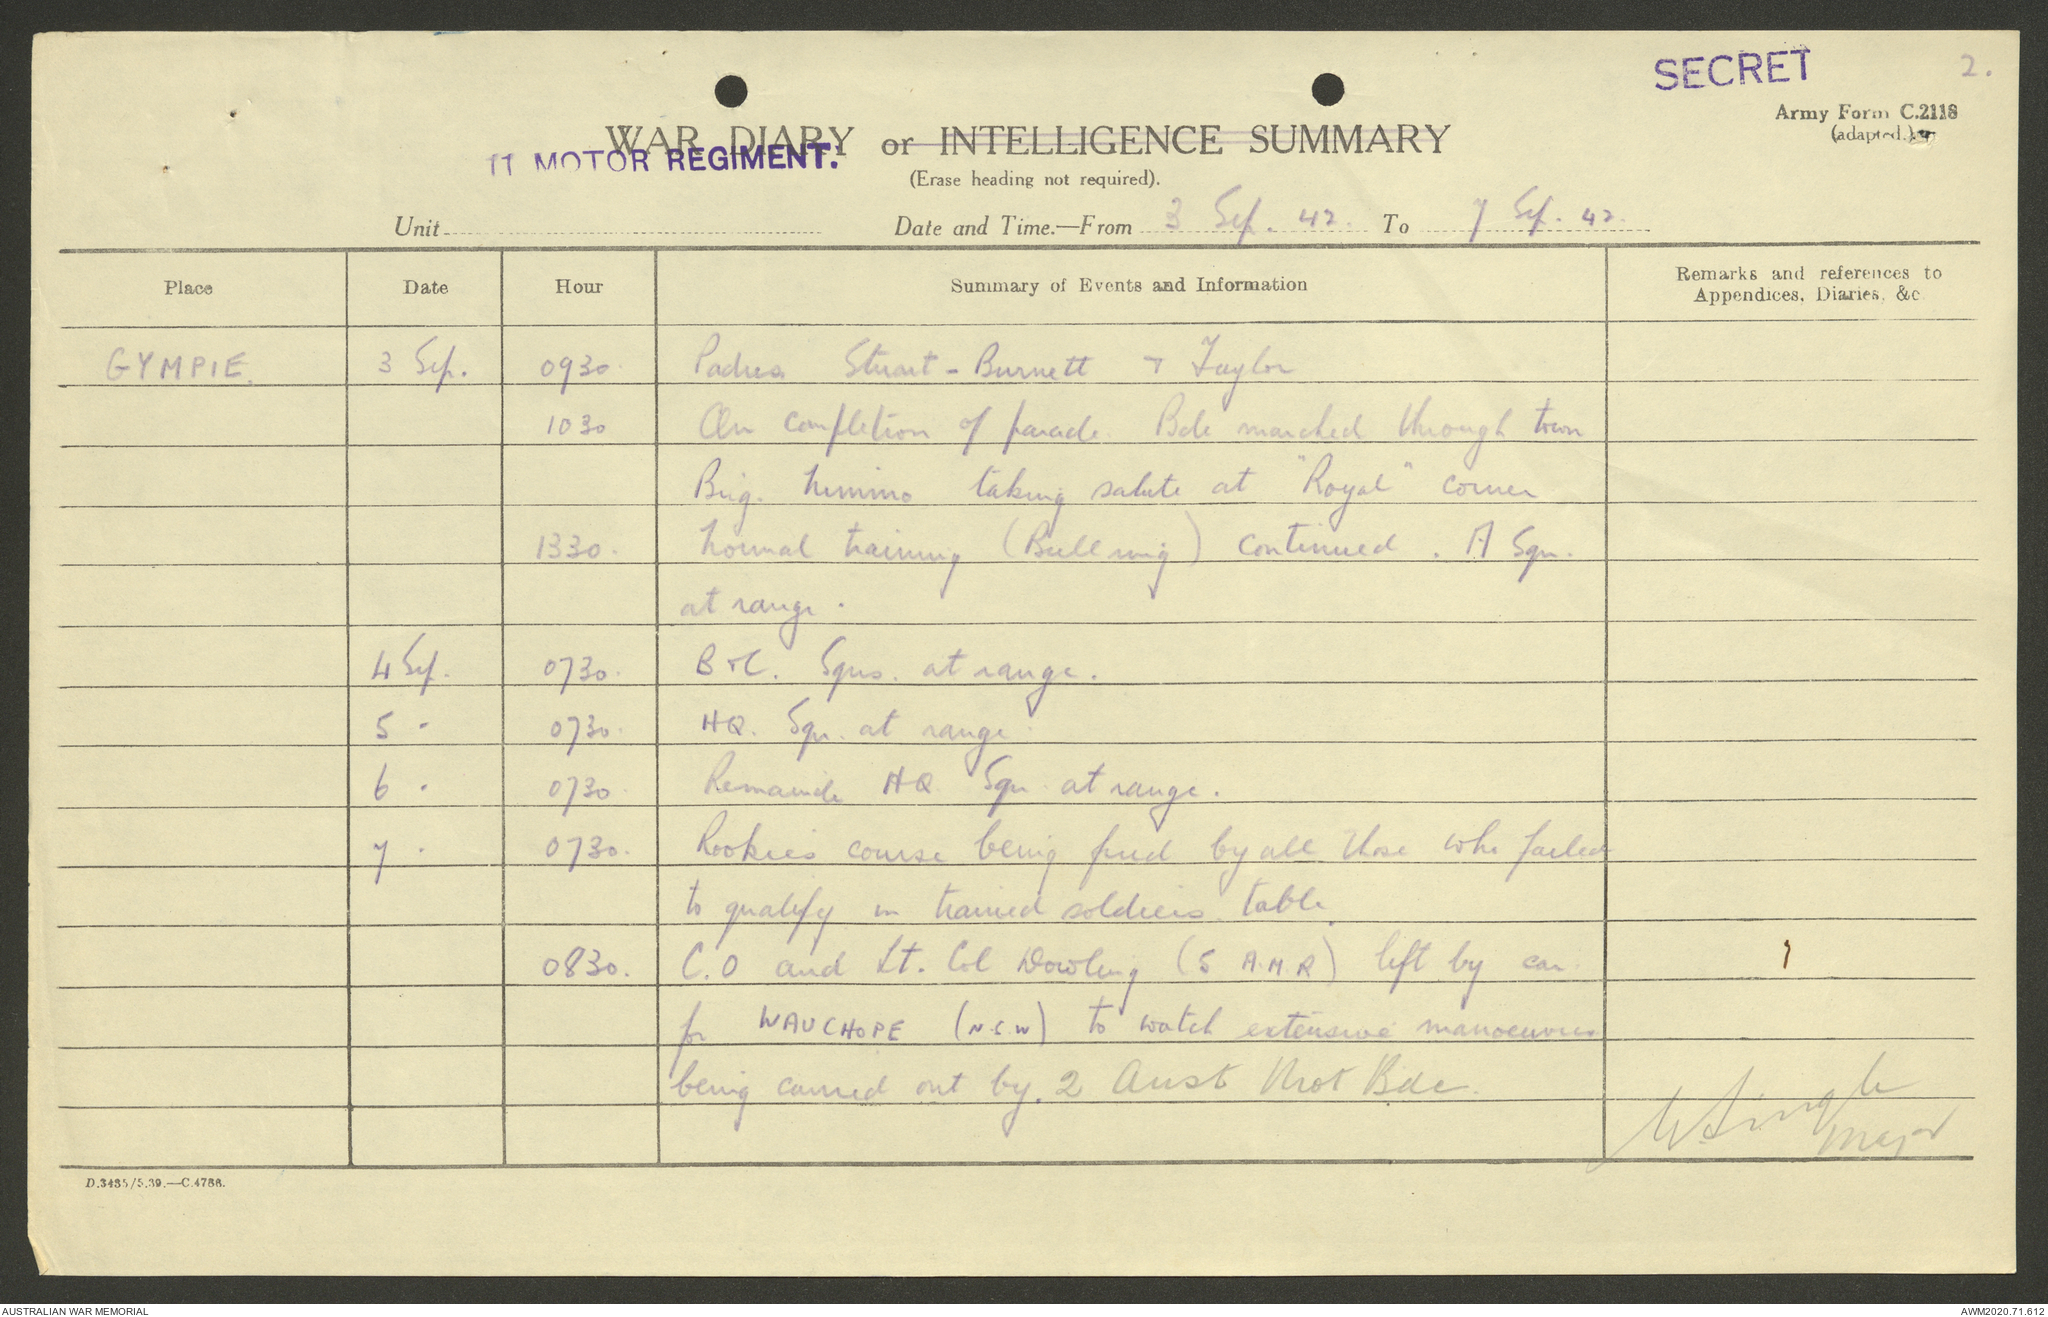 SECRET
2.
Army Form C.2118
(adapted.)
WAR DIARY or INTELLIGENCE SUMMARY
11 MOTOR REGIMENT.
(Erase heading not required).
Unit Date and Time.—From 3 Sep. 42. To 7 Sep. 42.
Place Date Hour Summary of Events and Information Remarks and references to
Appendices, Diaries, &c.
GYMPIE. 3 Sep. 0930. Padres Stuart-Burnett & Taylor
1030 On completion of parade. Bde marched through town
Brig. Nimmo taking salute at "Royal" corner
1330. Normal training (Bull ring) continued. A Sqn.
at range.
4 Sep. 0730. B & C. Sqns. at range.
5 " 0730. HQ. Sqn. at range.
6 " 0730. Remainder HQ Sqn at range.
7 " 0730. Rookies course being fired by all those who failed
to qualify in trained soldiers table.
0830. C.O and Lt. Col Dowling (5 A.M.R) left by car
for WAUCHOPE (N.S.W) to watch extensive manoeuvres
being carried out by. 2 Aust Mot Bde.
W. Single
Major
D.3435/5.39.—C.4788.
AUSTRALIAN WAR MEMORIAL AWM2020.71.612